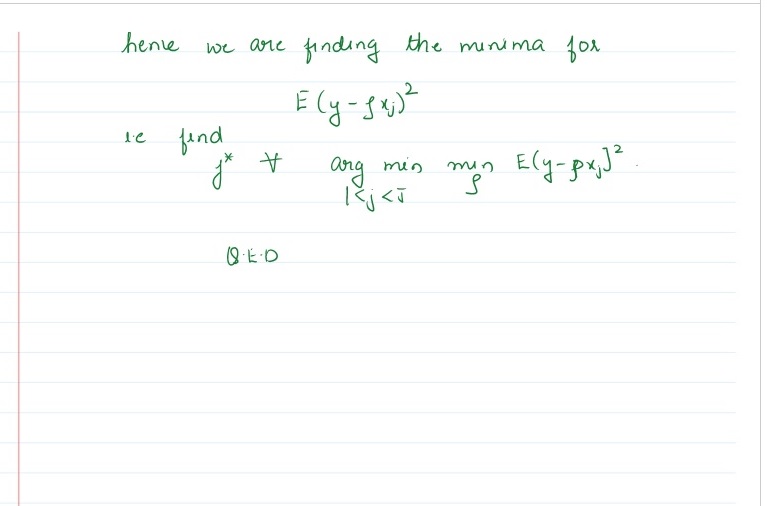 hence we are finding the minima for
E(y-ρxj)²
i.e find
j* ∀ arg min min E(y-ρxj]²
1<j<J ρ
Q.E.D